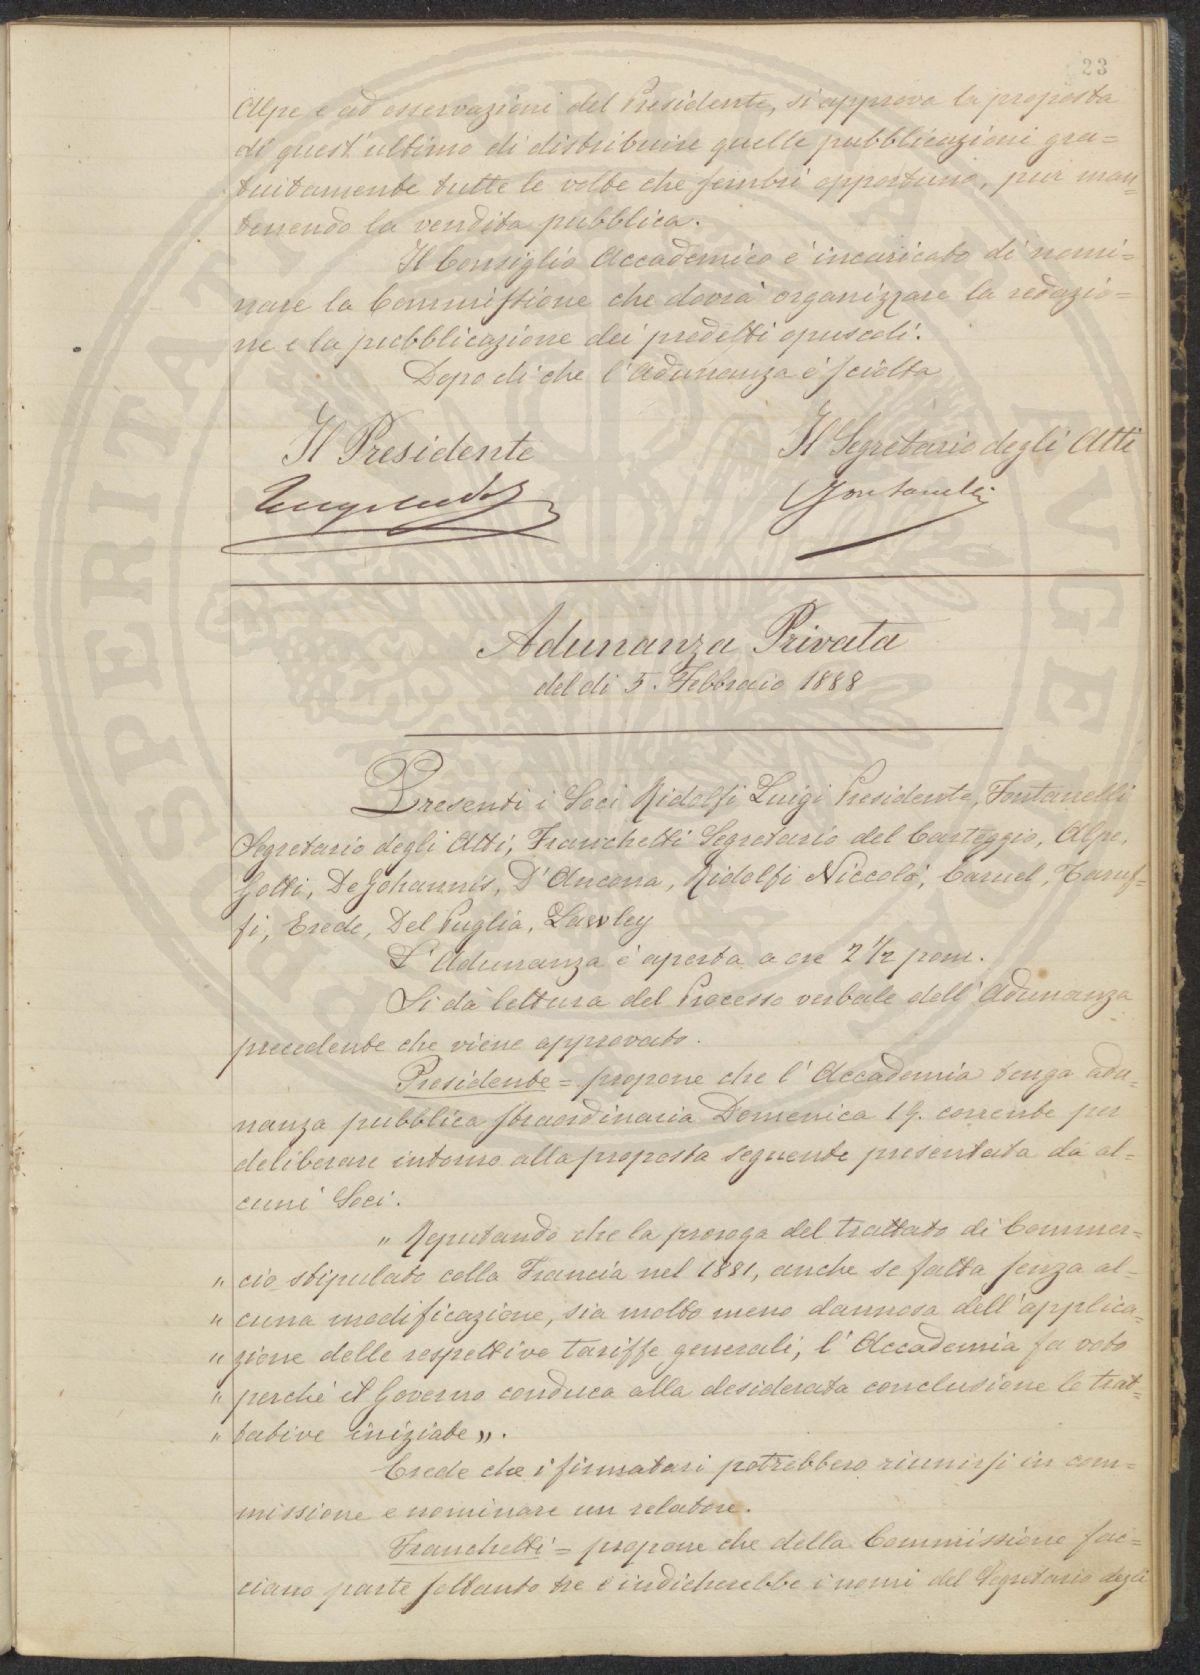 23
Alpe e ad osservazioni del Presidente, si approva la proposta
di quest'ultimo di distribuire quelle pubblicazioni gra=
tuitamente tutte le volte che sembri opportuno, pur man=
tenendo la vendita pubblica.
Il Consiglio Accademico è incaricato di nomi=
nare la Commissione che dovrà organizzare la redazio=
ne e la pubblicazione dei predetti opuscoli.
Dopo di che l'Adunanza è sciolta
Il Presidente
Il Segretario degli Atti
Fontanelli
Adunanza Privata
del dì 5. Febbraio 1888
Presenti i Soci Ridolfi Luigi Presidente, Fontanelli
Segretario degli Atti, Franchetti Segretario del Carteggio, Alpe,
Gotti, De Johannis, D'Ancona, Ridolfi Niccolò, Caruel, Taruf=
fi, Erede, Del Puglia, Lawley
L'Adunanza è aperta a ore 2 1/2 pom.
Si dà lettura del Processo verbale dell'Adunanza
precedente che viene approvato.
Presidente = propone che l'Accademia tenga adu=
nanza pubblica straordinaria Domenica 19. corrente per
deliberare intorno alla proposta seguente presentata da al=
cuni Soci.
„ Reputando che la proroga del trattato di Commer=
„ cio stipulato colla Francia nel 1881, anche se fatta senza al=
„ cuna modificazione, sia molto meno dannosa dell'applica=
„ zione delle respettive tariffe generali, l'Accademia fa voto
„ perchè il Governo conduca alla desiderata conclusione le trat=
„ tative iniziate „.
Crede che i firmatari potrebbero riunirsi in com=
missione e nominare un relatore.
Franchetti = propone che della Commissione fac=
ciano parte soltanto tre e indicherebbe i nomi del Segretario degli
PROSPERITATI AVGENDAE